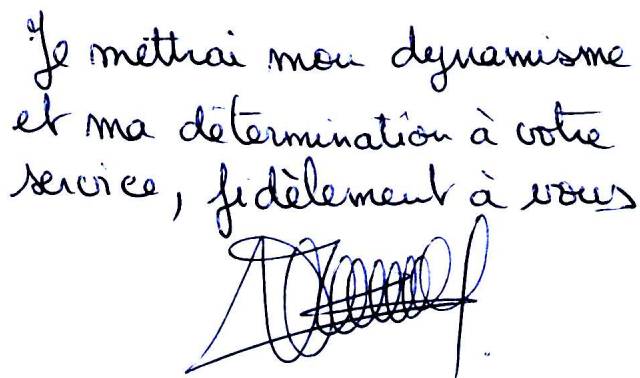 Je mettrai mon dynamisme
et ma détermination à votre
service, fidèlement à vous